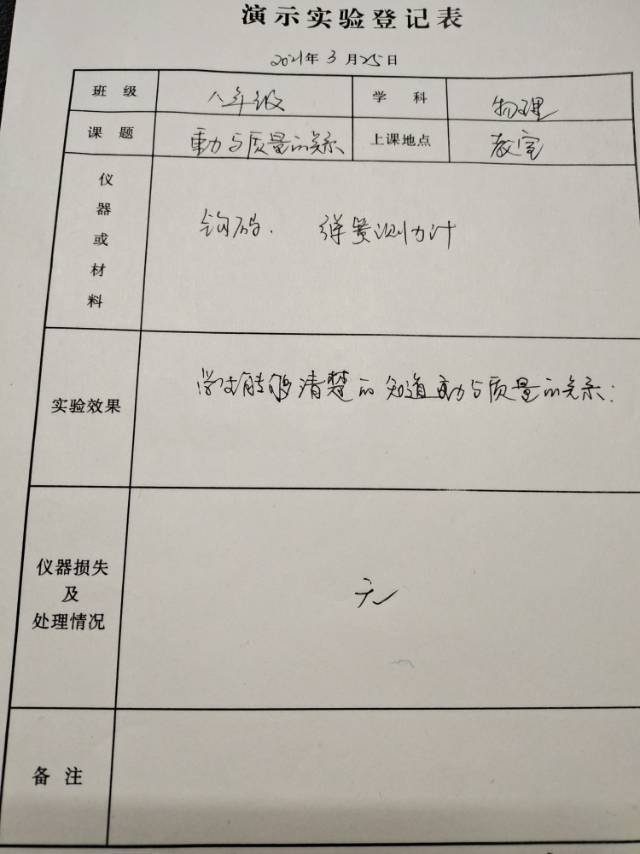 演示实验登记表
2021年3月25日
班级 八年级 学科 物理
课题 重力与质量的关系 上课地点 教室
仪器或材料 钩码. 弹簧测力计
实验效果 学生能够清楚的知道重力与质量的关系;
仪器损失
及
处理情况 无
备注